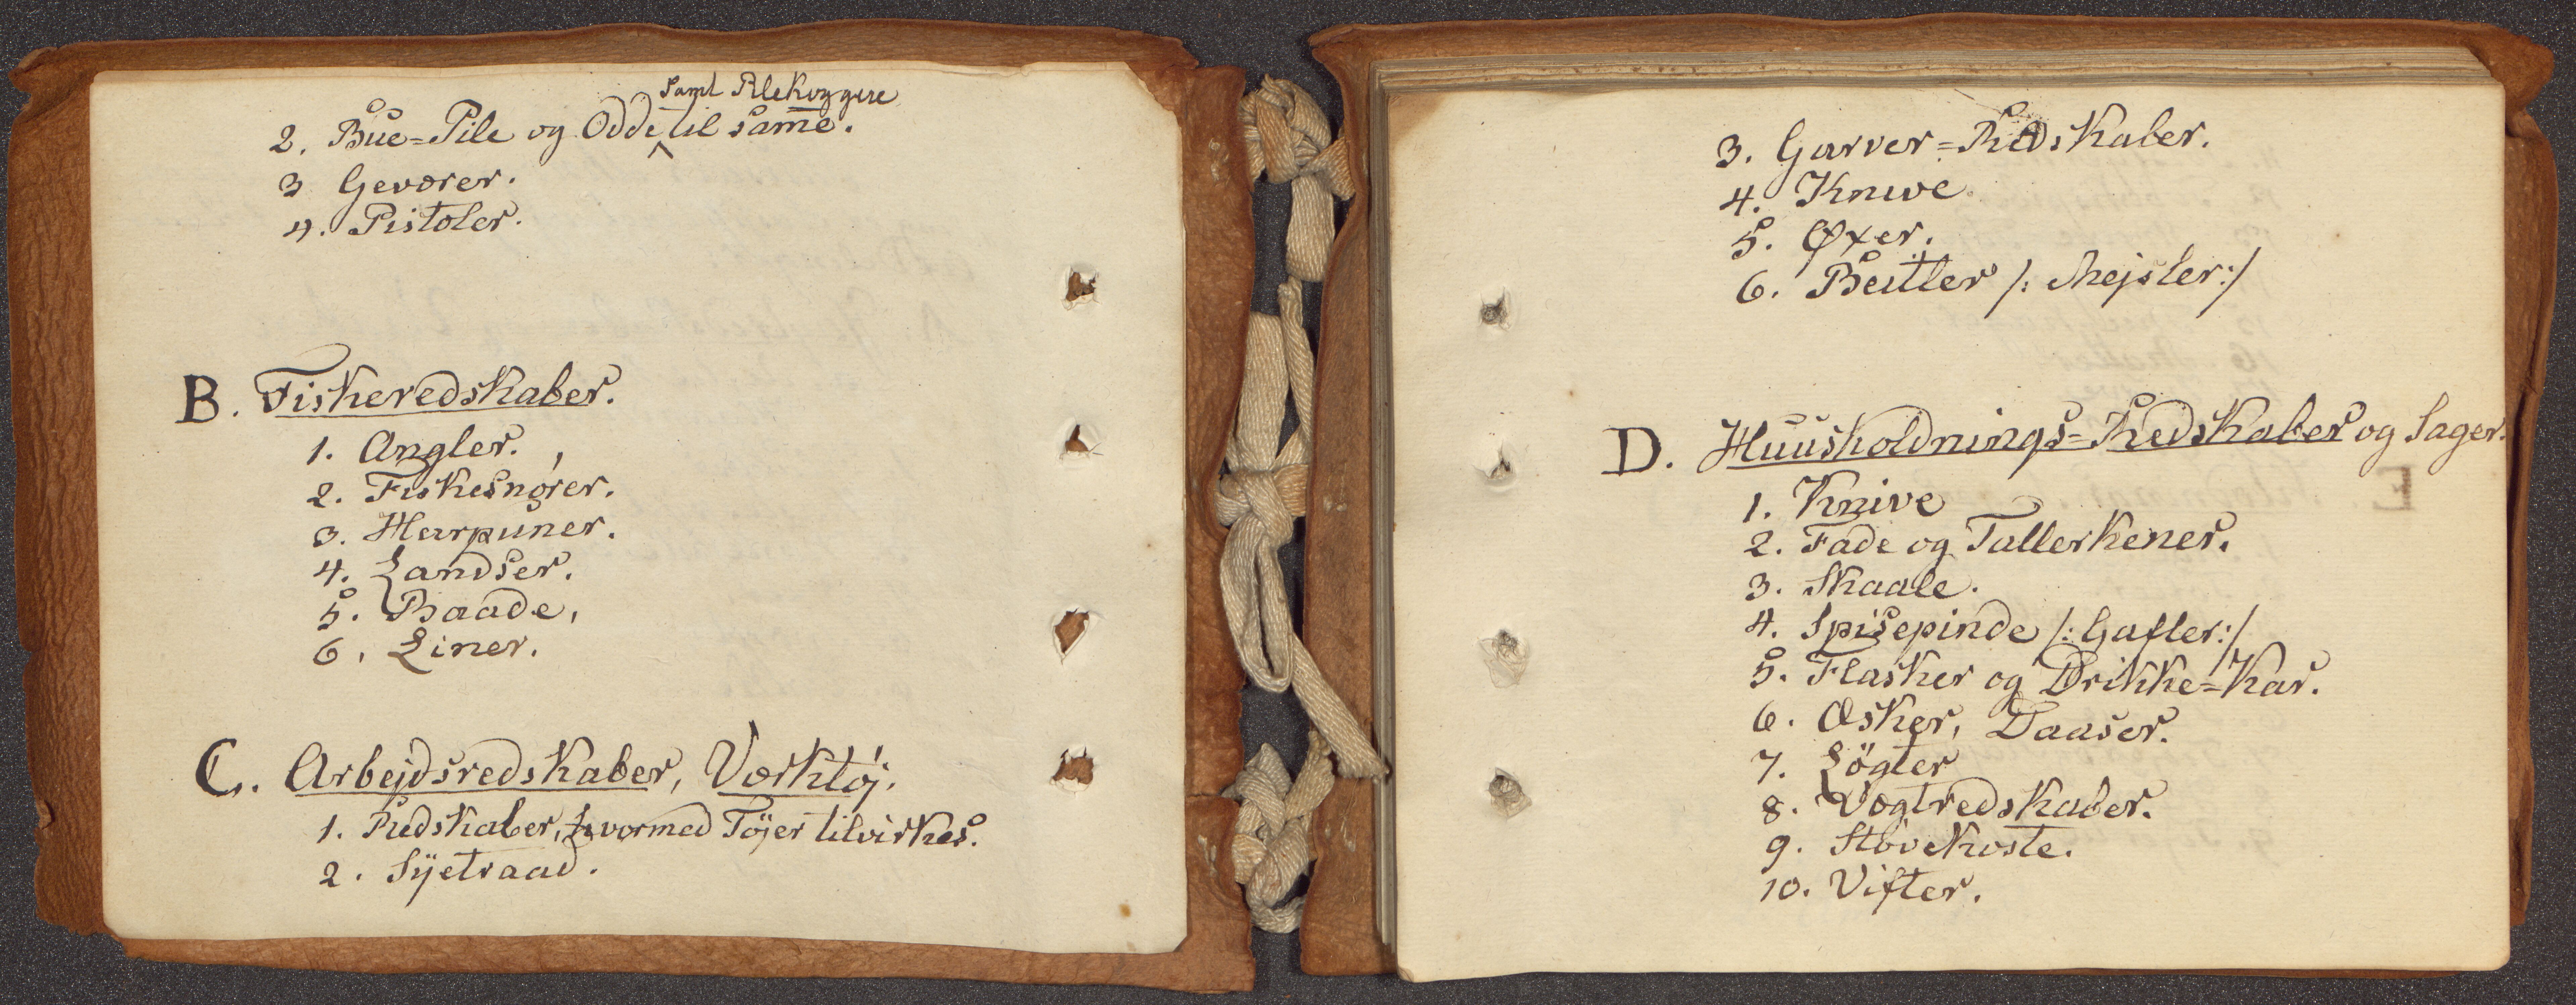 samt Pilekoggere
2. Bue=Pile og Odde til samme.
3 Geværer.
4. Pistoler.
B. Fiskeredskaber.
1. Angler.
2. Fiskesnører.
3. Harpuner.
4. Landser.
5. Baade,
6. Liner.
C. Arbejdsredskaber, Værktøj.
1. Redskaber, hvormed Töjer tilvirkes.
2. Syetraad.
3. Garver=Redskaber.
4. Knive
5. Øxer.
6. Beitler /: Mejsler:/
D. Huusholdnings=Redskaber og Sager.
1. Knive
2. Fade og Tallerkener.
3. Skaale.
4. Spisepinde /: Gafler:/
5. Flasker og Drikke=Kar.
6. Æsker, Daaser.
7. Lögter
8. Vægtredskaber.
9. Stövekoste.
10. Vifter.